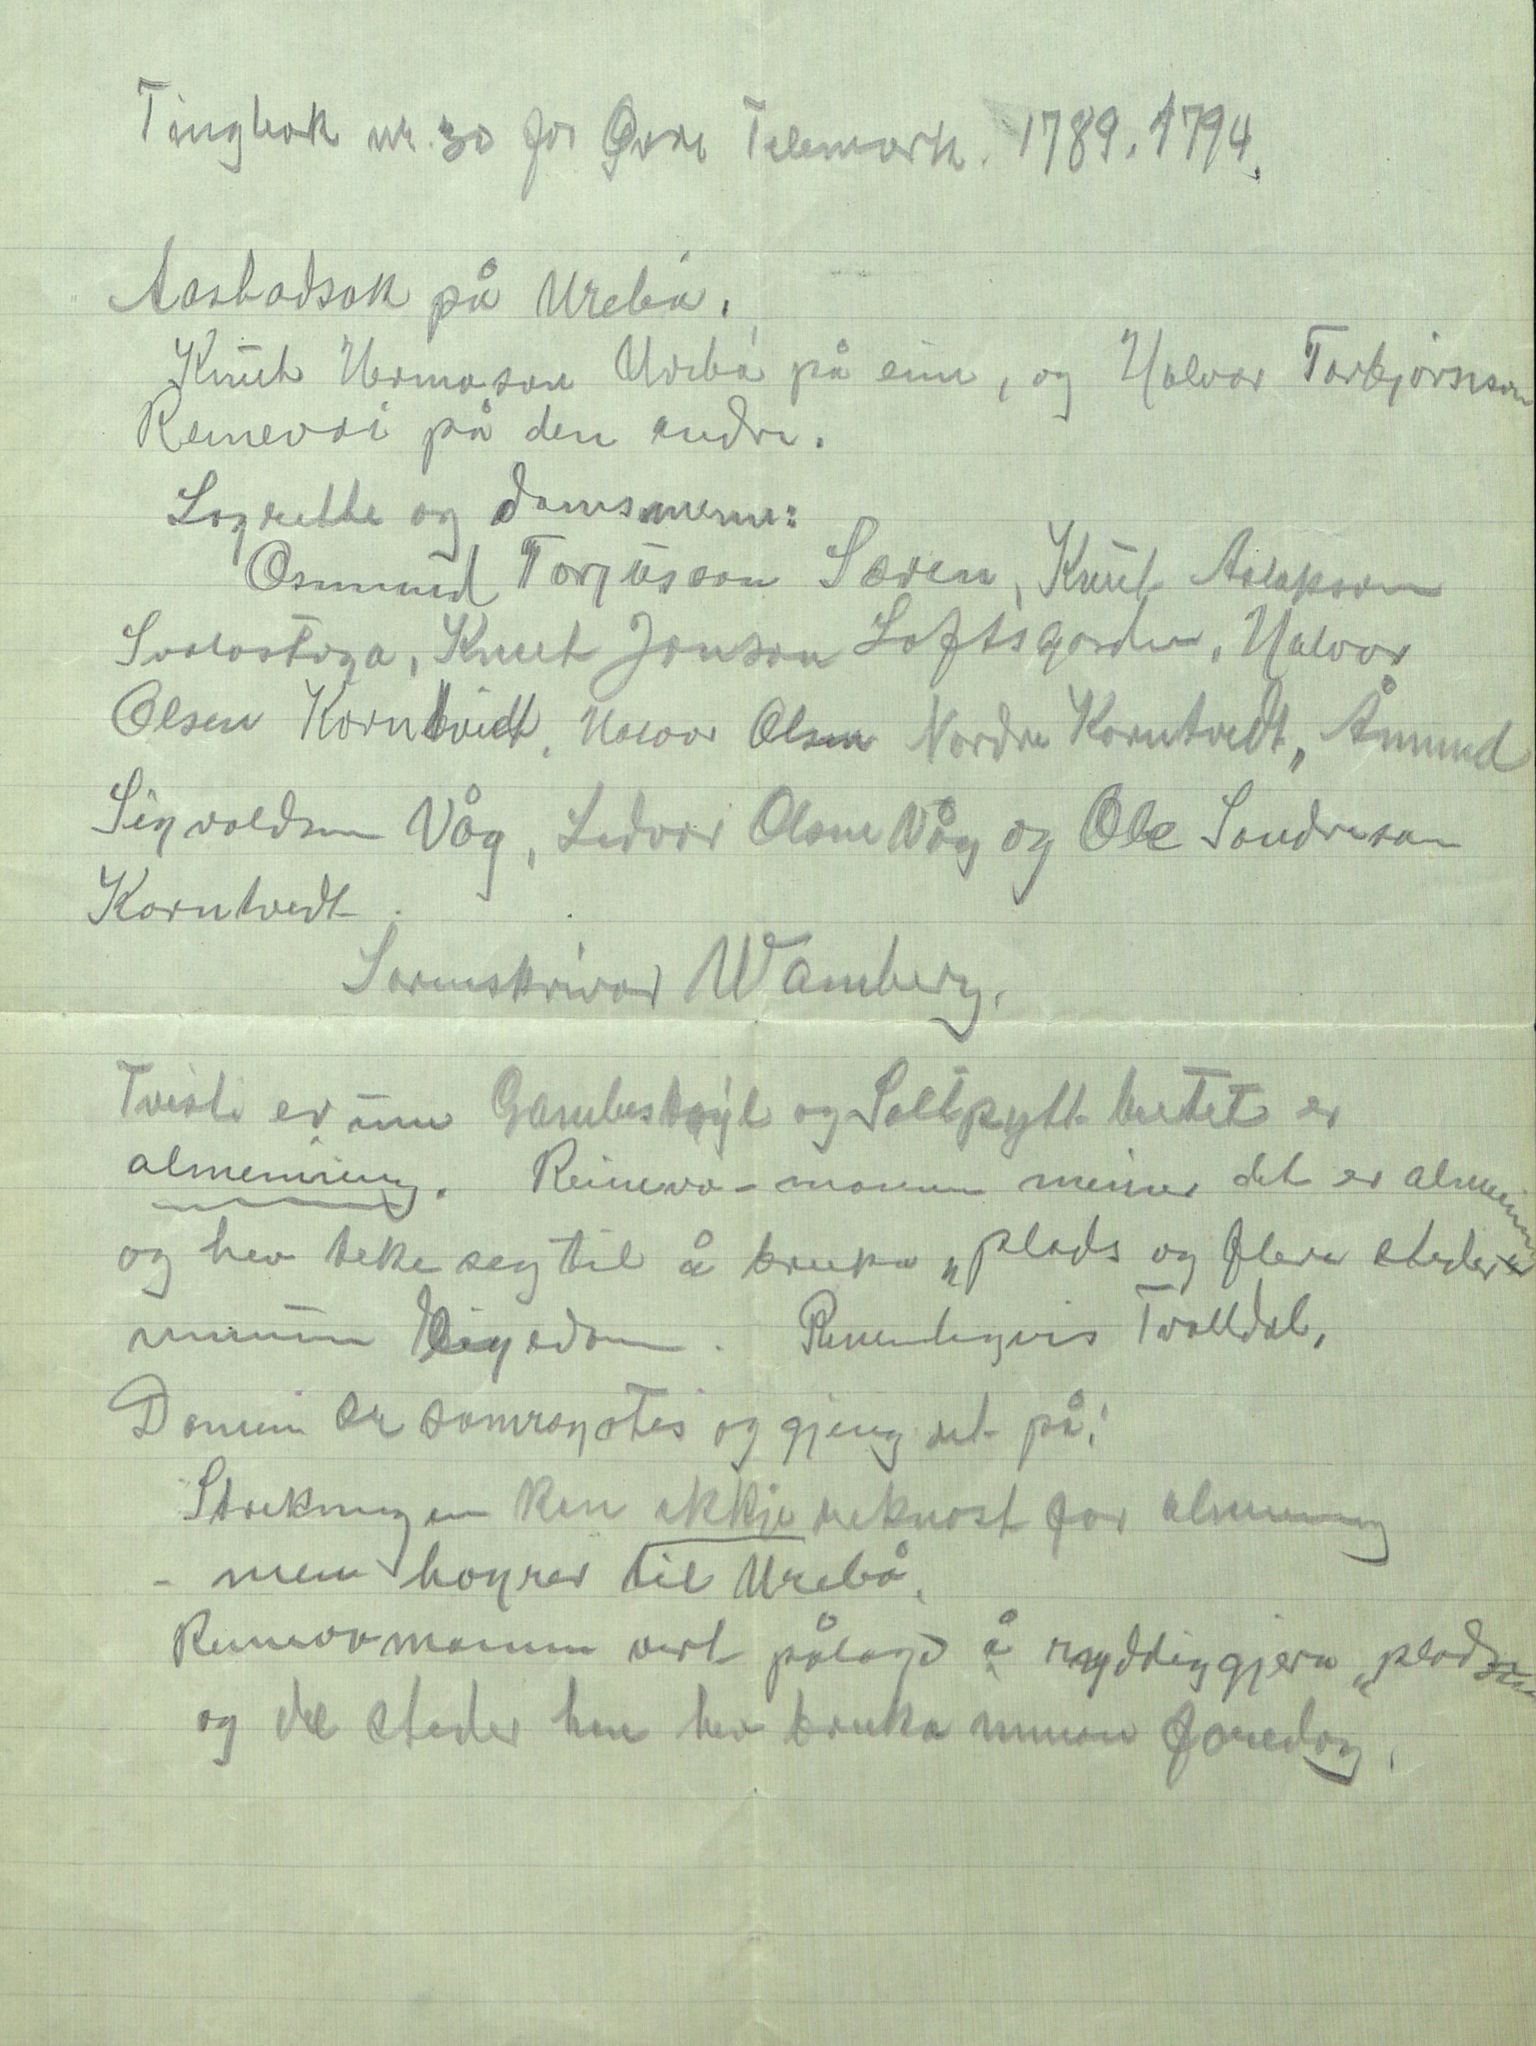 Tingbok nr. 30 for Øvre Telemark. 1789. 1794.
Aastadsak på Urebø.
Knut Hermoson Urebø på eine, og Halvor Torbjørnson
Reinevoi på den andre.
Lagrette og domsmenn:
Osmund Torjusson Særen, Knut Aslakson
Svalastoga, Knut Jonson Loftsgarden, Halvor
Olsen Korntvedt, Halvor Olsen Nordre Korntvedt, Åmund
Sigvaldsen Våg, Ledvor Olsen Våg og Ole Sondreson
Korntvedt.
Sorenskrivar Wamberg.
Tvisti er um og Saltpytt hetet er
almenning. Reinevo-mannen meiner det er almenning
og hev teke seg til å bruka „plads og flere steder
minn Eigedom. Trolldal.
Domen er samrøystes og gjeng ut på:
Strekningen kan ikkje reknast for almenning
- men høyrer til Urebø.
Reinevomannen vert pålagd å ryddiggjera „pladsen
og dei steder han hev bruka innan faredag.